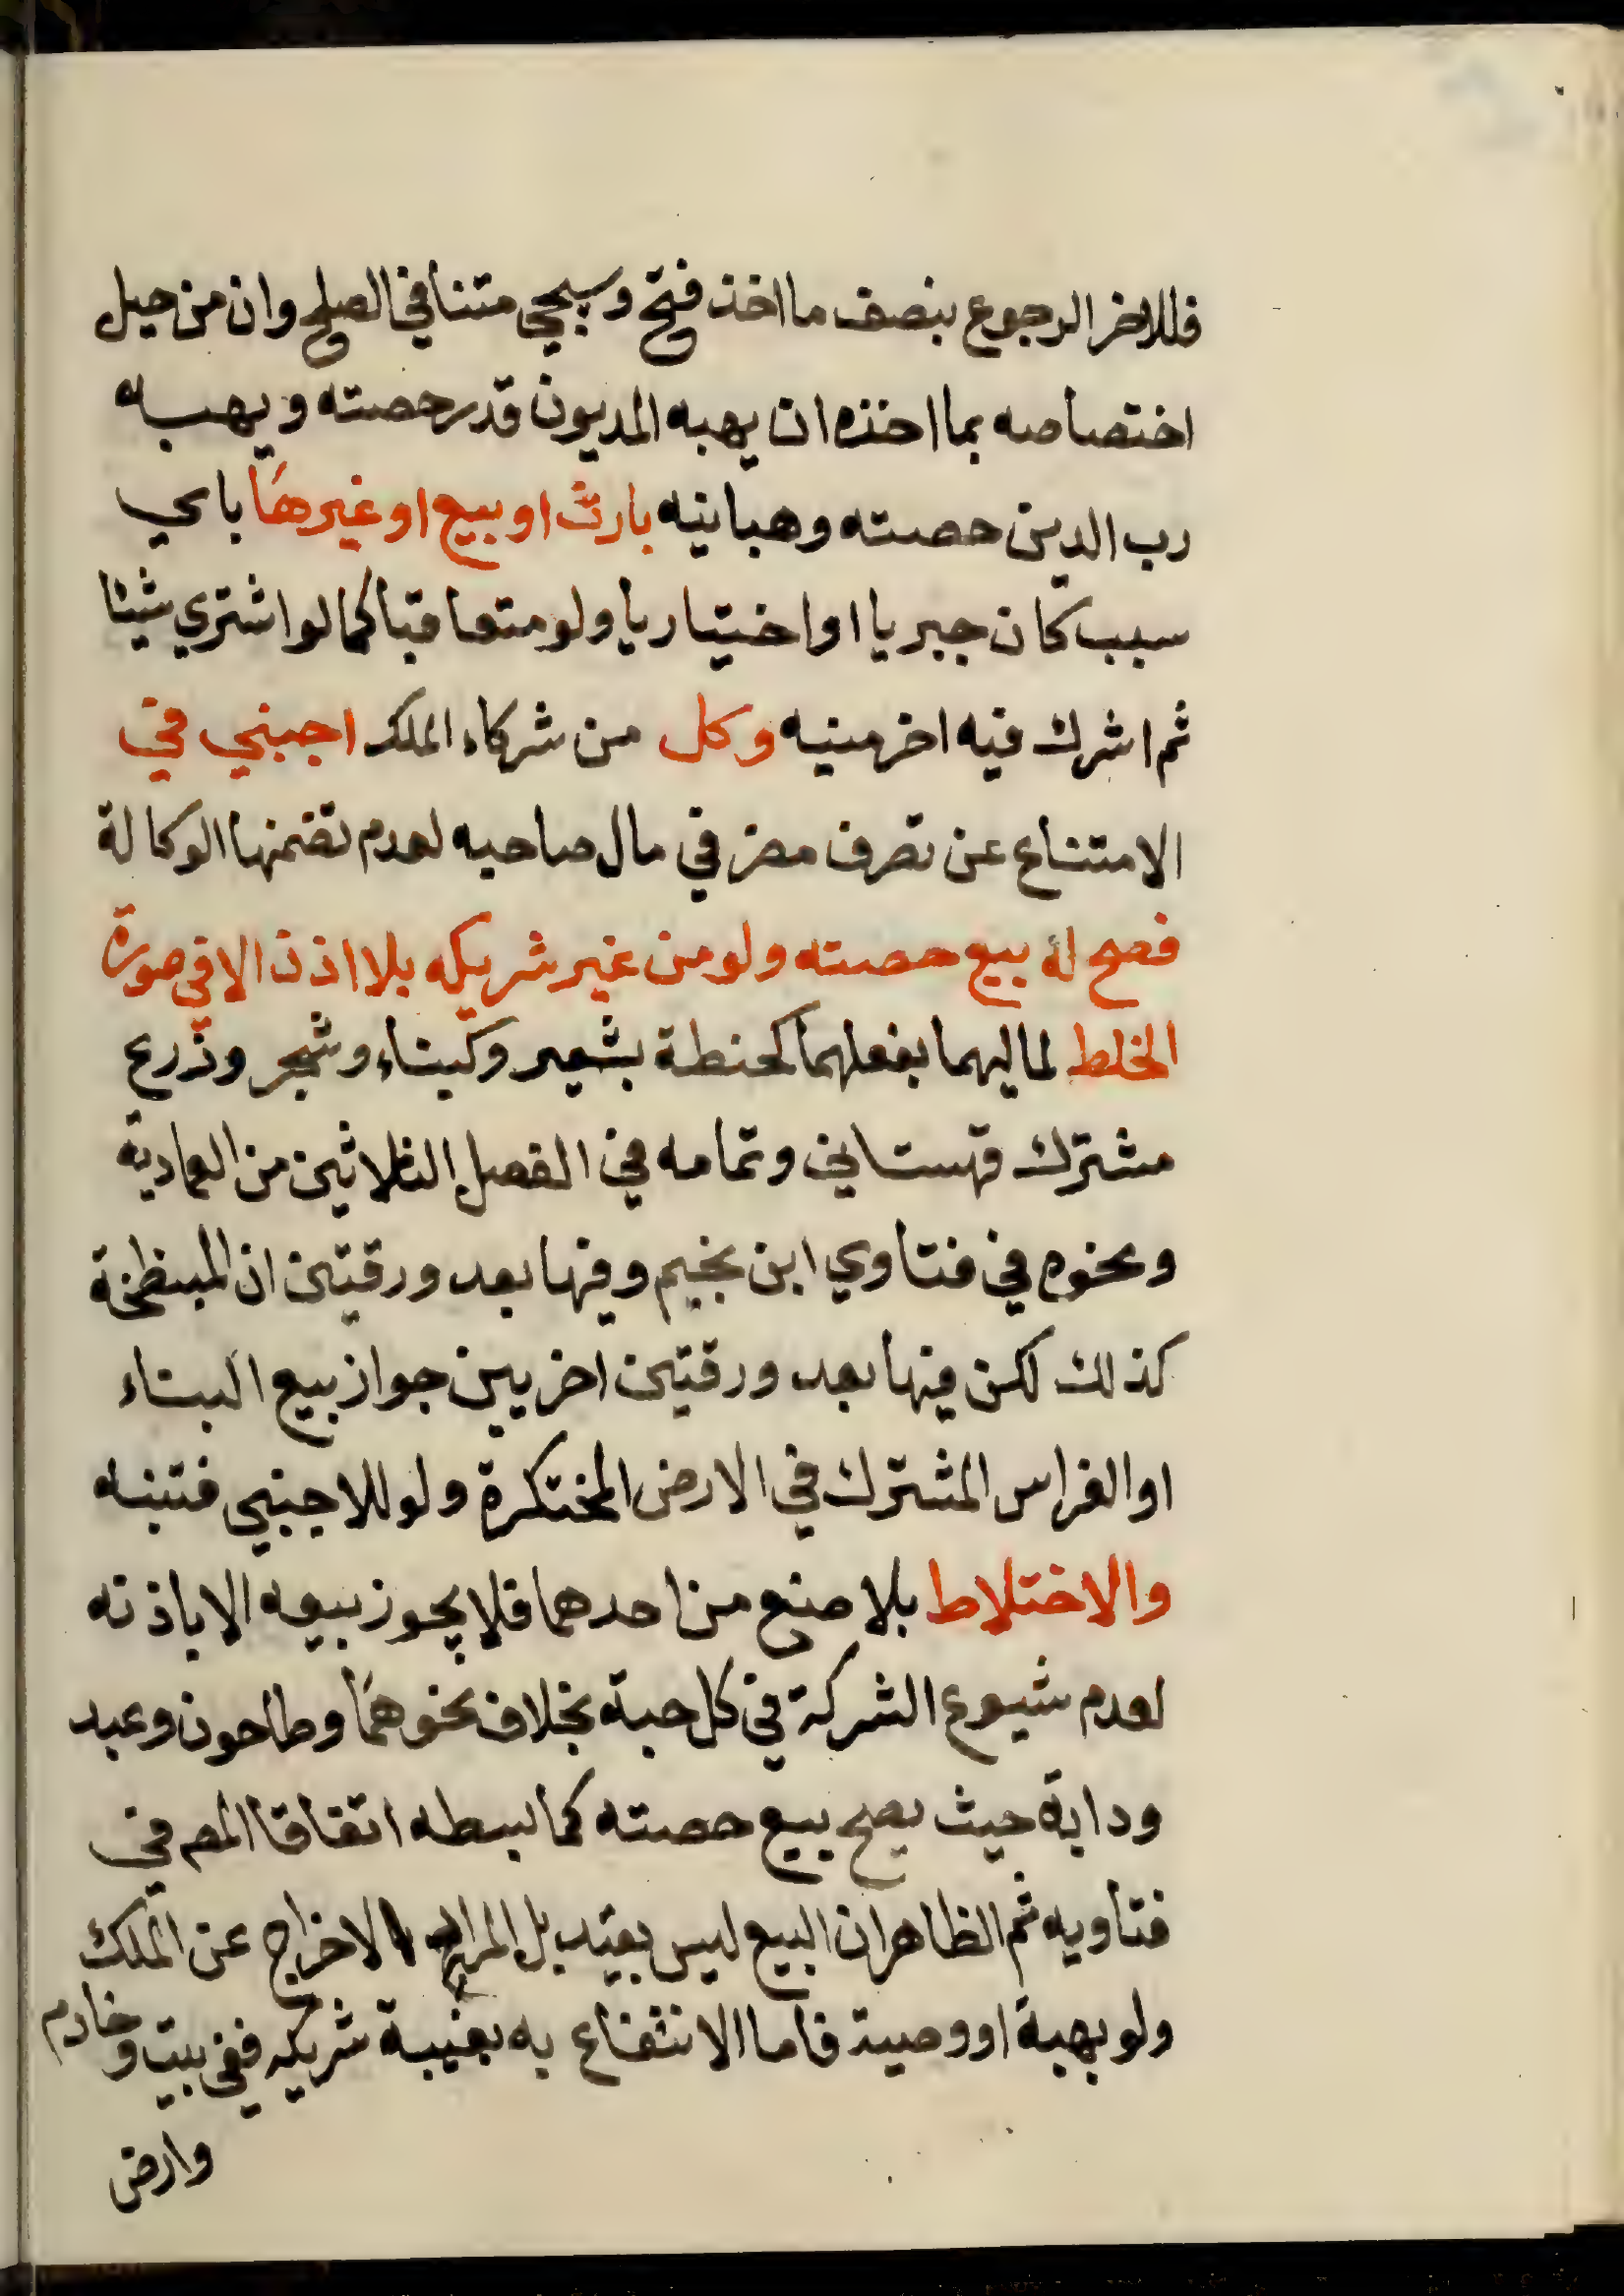 فللاخر الرجوع بنصف ما اخذ فتح وسيجي متنا في الصلح وان من حيل
اختصاصه بما اخذه ان يهبه المديون قدر حصته ويهبه
رب الدين حصته وهبانيه بارث او بيع او غيرها باي
سبب كان جبريا او اختياريا ولو متعاقبا كما لو اشتري شيئا
ثم اشرك فيه اخر منيه وكل من شركاء الملك اجنبي في
الامتناع عن تصرف مضر في مال صاحبه لعدم تضمنها الوكالة
فصح له بيع حصته ولو من غير شريكه بلا اذن الا في صورة
الخلط لماليهما بفعلهما كحنطة بشعير وكبناء وشجر وذرع
مشترك قهستاني وتمامه في الفصل الثلاثين من العمادية
ونحوه في فتاوي ابن نجيم وفيها بعد ورقتين ان المبطخة
كذلك لكن فيها بعد ورقتين اخريين جواز بيع البناء
او الغراس المشترك في الارض المحتكرة ولو للاجنبي فتنبه
والاختلاط بلا صنع من احدهما فلا يجوز بيعه الا باذنه
لعدم شيوع الشركة في كل حبة بخلاف نحوهما وطاحون وعبد
ودابة حيث يصح بيع حصته كما بسطه اتفاقا المص في
فتاويه ثم الظاهر ان البيع ليس بقيد بل المراد الاخراج عن الملك
ولو بهبة او وصية فاما الانتفاع به بغيبة شريكه ففي بيت وخادم
وارض